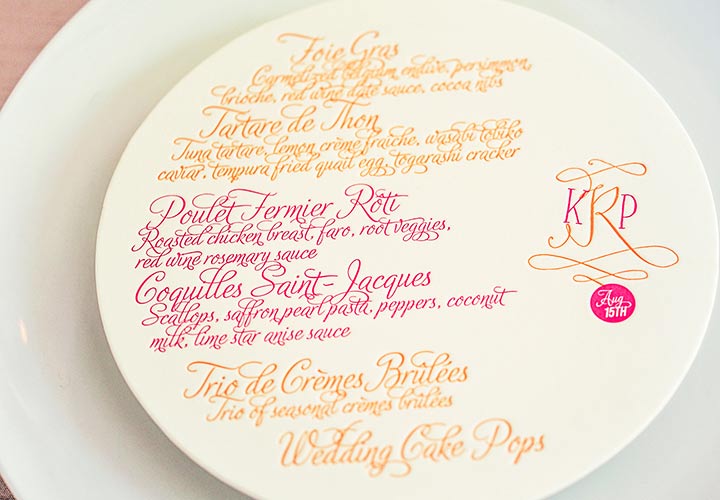 Foie Gras
Carmelized belgium endive, persimmon,
brioche, red wine date sauce, cocoa nibs
Tartare de Thon
Tuna tartare, lemon crème fraiche, wasabi tobiko
caviar, tempura fried quail egg, togarashi cracker
Poulet Fermier Rôti
Roasted chicken breast, faro, root veggies,
red wine rosemary sauce
Coquilles Saint-Jacques
Scallops, saffron pearl pasta, peppers, coconut
milk, lime star anise sauce
Trio de Crèmes Brûlées
Trio of seasonal crèmes brûlées
Wedding Cake Pops
KRP
Aug
15TH